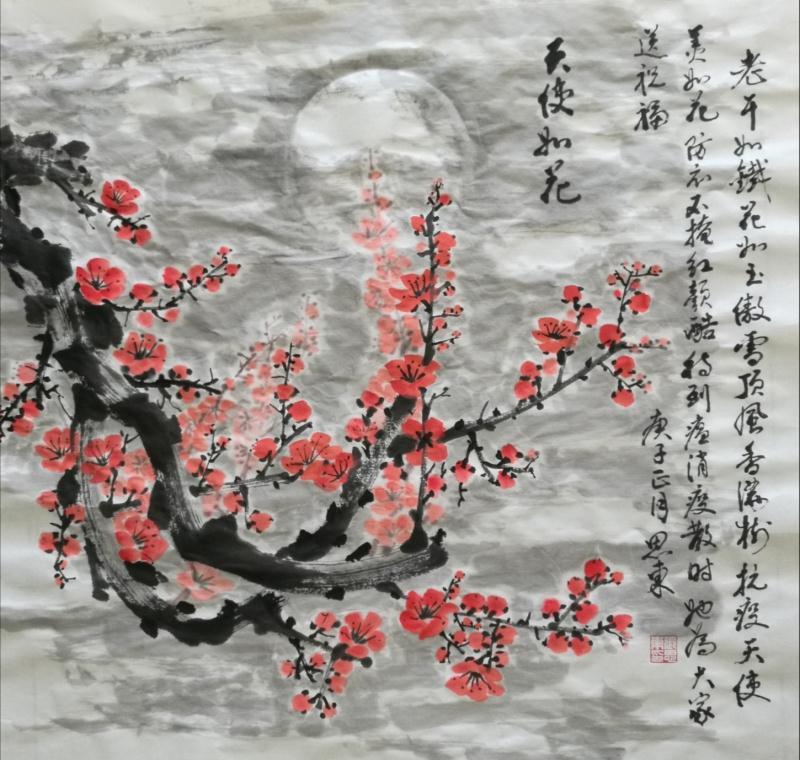 老干如鐵花如玉傲雪顶風香满树抗疫天使
美如花防衣不掩红颜酷待到瘟消疫散时她為大家
送祝福
庚子正月思東
天使如花